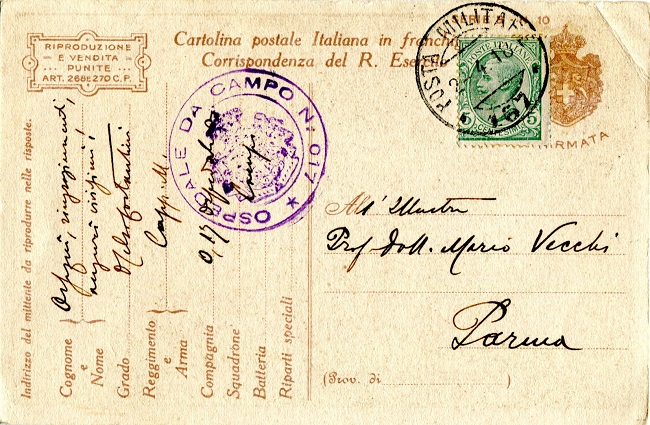 RIPRODUZIONE
E VENDITA
PUNITE
ART. 268 E 270 C.P.
SERIE B N. 10
Cartolina postale Italiana in franchigia
Corrispondenza del R. Esercito
POSTA MILITARE
157
POSTE ITALIANE
5 CENTESIMI 5
FIRMATA
OSPEDALE DA CAMPO N. 017
All'Illustre
Prof. Dott. Mario Vecchi
Parma
(Prov. di )
Indirizzo del mittente da riprodurre nelle risposte.
Ossequi, ringraziamenti,
auguri vivissimi!
Cognome
e
Nome
Grado
Reggimento
e
Arma
Compagnia
Squadrone
Batteria
Riparti speciali